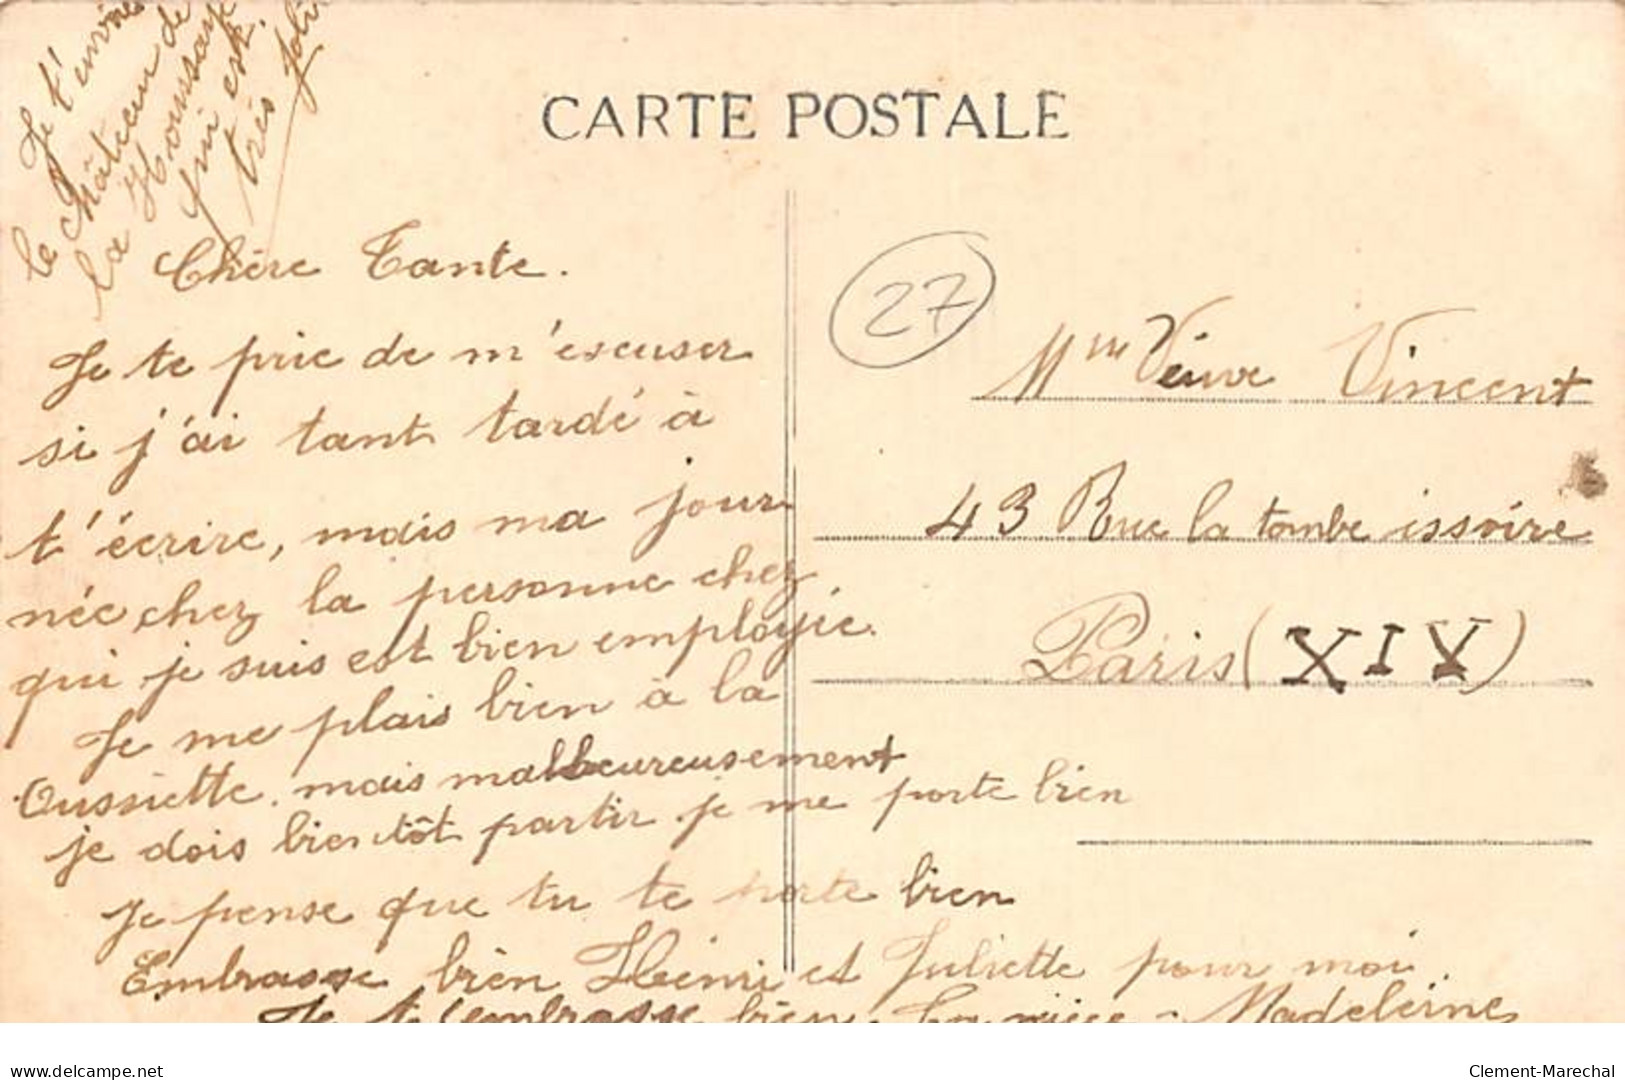 Je t'envoie
le Château de
la Houssaye
qui est
très joli
CARTE POSTALE
Chère Tante.
Je te prie de m'escuser
si j'ai tant tardé à
t'écrire, mais ma jour
née chez la personne chez
qui je suis est bien employée.
Je me plais bien à la
Oussiette. mais malheureusement
je dois bientôt partir. je me porte bien
Je pense que tu te porte bien
Embrasse bien Henri et Juliette pour moi.
Je t'embrasse bien. Ta nièce - Madeleine
27
Mme Veuve Vincent
43 Rue la tombe issoire
Paris (XIV)
www.delcampe.net
Clement-Marechal